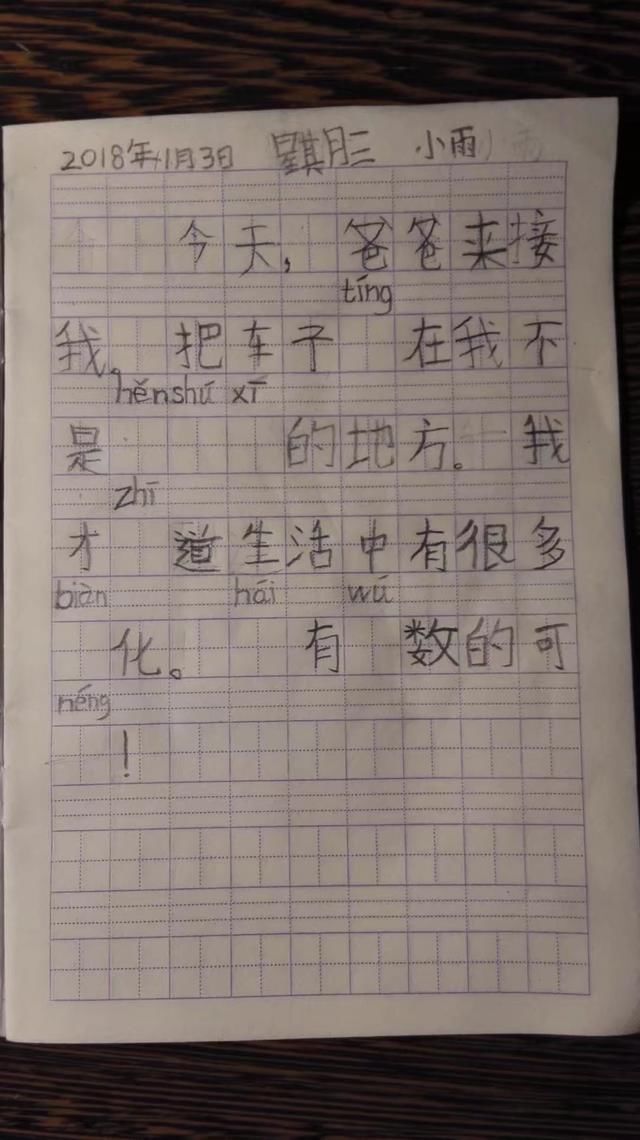 2018年11月3日 星期三 小雨
今天,爸爸来接
tíng
我。把车子 在我不
hěn shú xī
是 的地方。我
zhī
才 道生活中有很多
biàn hái wú
化。 有 数的可
néng
!